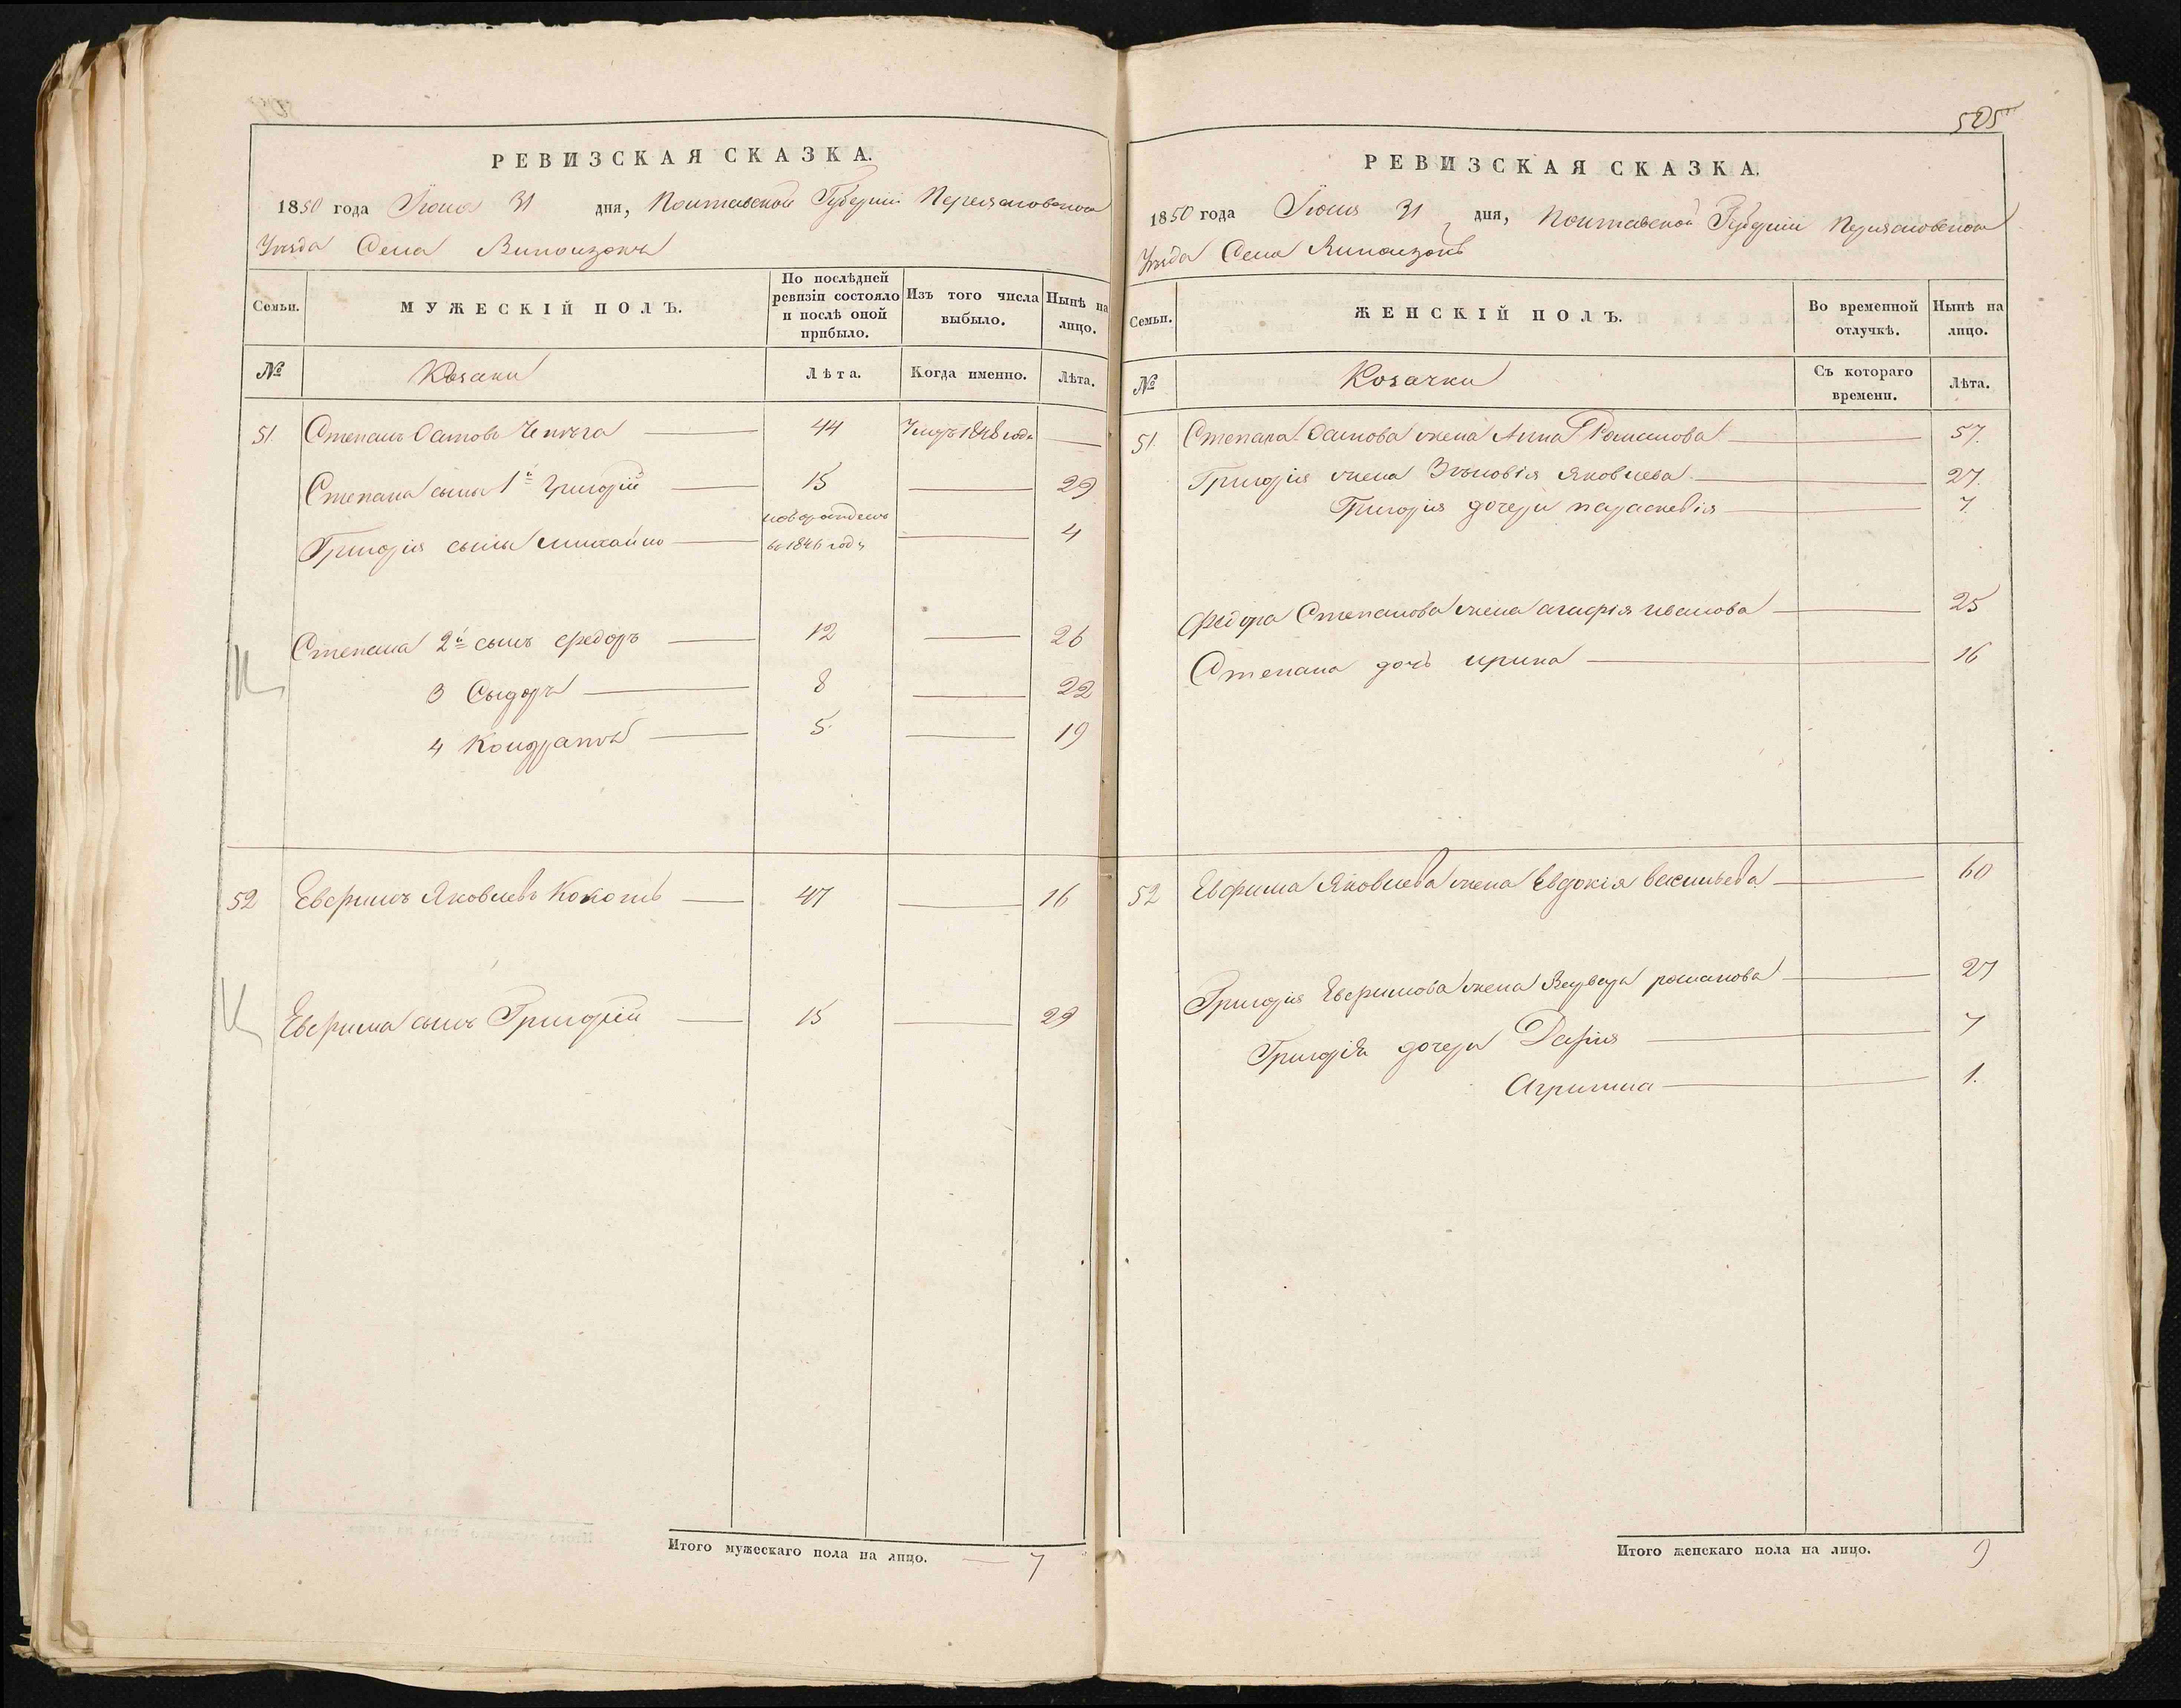 505
РЕВИЗСКАЯ СКАЗКА.
1850 года Июня 31 дня, Полтавской Губерніи Переяславского
Уезда Села Випользокъ
Семьи. МУЖЕСКІЙ ПОЛЪ. По послѣдней ревизіи состояло и послѣ оной прибыло. Изъ того числа выбыло. Нынѣ на лицо.
№ Козаки Лѣта. Когда именно. Лѣта.
51 Степанъ Осиповъ 44 Умеръ 1848 года
Степана сынъ 1й Григорій 15 29
Григорія сынъ Михайло новорожденъ во 1846 году 4
Степана 2й сынъ Федоръ 12 26
3 Сыдоръ 8 22
4 Кондратъ 5 19
52 Евфимъ Яковлевъ Кокоть 47 16
Евфима сынъ Григорій 15 29
Итого мужескаго пола на лицо. 7
РЕВИЗСКАЯ СКАЗКА.
1850 года Июня 31 дня, Полтавской Губерніи Переяславского
Уезда Села Випользокъ
Семьи. ЖЕНСКІЙ ПОЛЪ. Во временной отлучкѣ. Нынѣ на лицо.
№ Козачки Съ котораго времени. Лѣта.
51. Степана Осипова жена Анна Романова 57.
Григорія жена Зѣновія Яковлева 27.
Григорія дочери Параскевія 7
Федора Степанова жена Агафія Иванова 25
Степана дочь Ирина 16
52 Евфима Яковлева жена Евдокія Васильева 60
Григорія Евфимова жена Варвара Романова 27
Григорія дочери Дарія 7
Агрипина 1.
Итого женскаго пола на лицо. 9